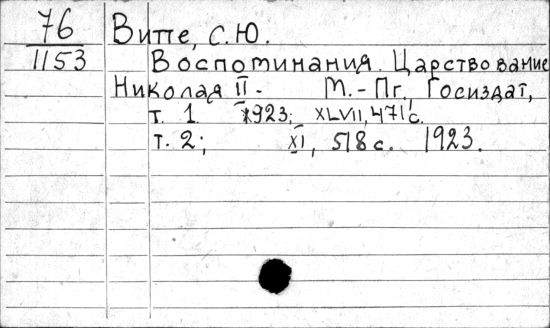 76
1153
Витте, С.Ю.
Воспоминания. Царствование
Николая II - М.-Пг., Госиздат,
т. 1 1923; XLVII, 471 с.
т. 2; XI, 518 с. 1923.